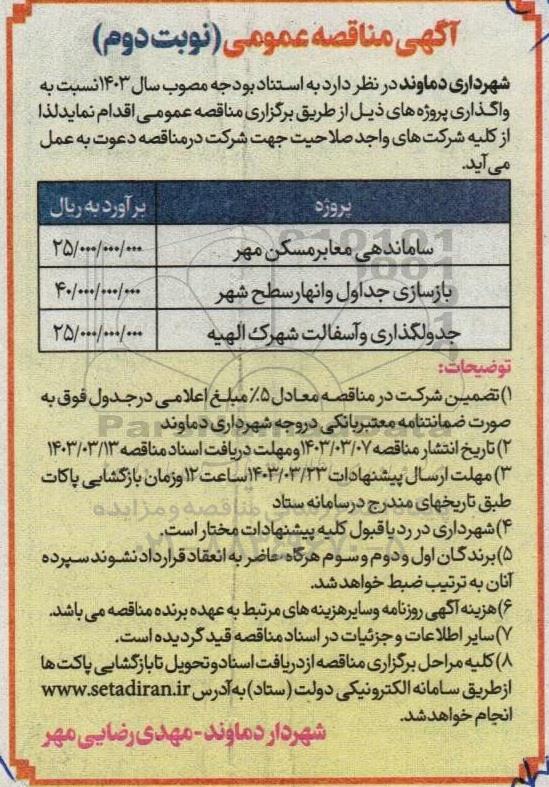 آگهی مناقصه عمومی (نوبت دوم)
شهرداری دماوند در نظر دارد به استناد بودجه مصوب سال ۱۴۰۳ نسبت به
واگذاری پروژه های ذیل از طریق برگزاری مناقصه عمومی اقدام نماید لذا
از کلیه شرکت های واجد صلاحیت جهت شرکت در مناقصه دعوت به عمل
می آید.
پروژه برآورد به ریال
ساماندهی معابر مسکن مهر ۲۵/۰۰۰/۰۰۰/۰۰۰
بازسازی جداول وانهار سطح شهر ۴۰/۰۰۰/۰۰۰/۰۰۰
جدولگذاری وآسفالت شهرک الهیه ۲۵/۰۰۰/۰۰۰/۰۰۰
توضیحات:
۱) تضمین شرکت در مناقصه معادل ۵٪ مبلغ اعلامی در جدول فوق به
صورت ضمانتنامه معتبر بانکی در وجه شهرداری دماوند
۲) تاریخ انتشار مناقصه ۱۴۰۳/۰۳/۰۷ و مهلت دریافت اسناد مناقصه ۱۴۰۳/۰۳/۱۳
۳) مهلت ارسال پیشنهادات ۱۴۰۳/۰۳/۲۳ ساعت ۱۲ وزمان بازگشایی پاکات
طبق تاریخهای مندرج در سامانه ستاد
۴) شهرداری در رد یا قبول کلیه پیشنهادات مختار است.
۵) برندگان اول و دوم و سوم هرگاه حاضر به انعقاد قرارداد نشوند سپرده
آنان به ترتیب ضبط خواهد شد.
۶) هزینه آگهی روزنامه وسایر هزینه های مرتبط به عهده برنده مناقصه می باشد.
۷) سایر اطلاعات و جزئیات در اسناد مناقصه قید گردیده است.
۸) کلیه مراحل برگزاری مناقصه از دریافت اسناد و تحویل تا بازگشایی پاکت ها
از طریق سامانه الکترونیکی دولت (ستاد) به آدرس www.setadiran.ir
انجام خواهد شد.
شهردار دماوند - مهدی رضایی مهر